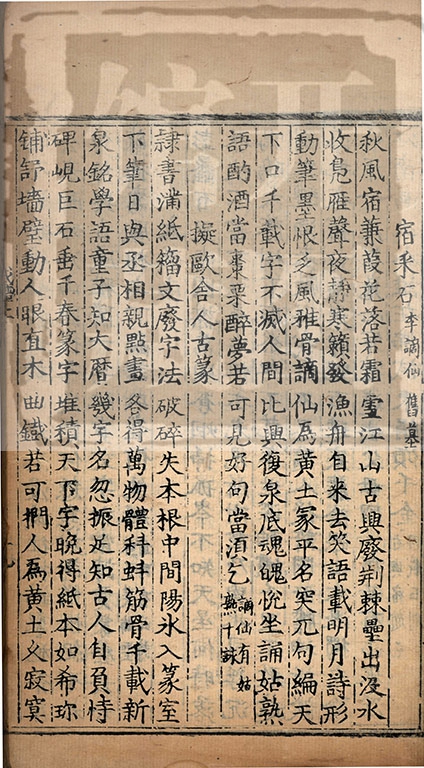 宿采石李謫仙舊墓
秋風宿蒹葭花落若霜雪江山古興廢荆棘壘出沒水
收鳧雁聲夜靜寒籟發漁舟自来去笑語載明月詩形
動筆墨恨乏風雅骨謫仙爲黄土冢平名突兀句編天
下口千載字不滅人間比興復泉底魂魄恍坐誦姑熟
語酌酒當棗栗醉夢若可見好句當湏乞謫仙有姑熟十詠
擬歐舍人古篆
隷書滿紙籀文廢字法破碎失本根中間陽氷入篆室
下筆日與丞相親點畫各得萬物體科蚪筋骨千載新
泉銘學語童子知大曆幾字名忽振足知古人自負恃
碑峴巨石垂千春篆字堆積天下字晚得紙本如希珎
鋪舒墻壁動人眼直木曲鐵若可捫人爲黄土义寂寞